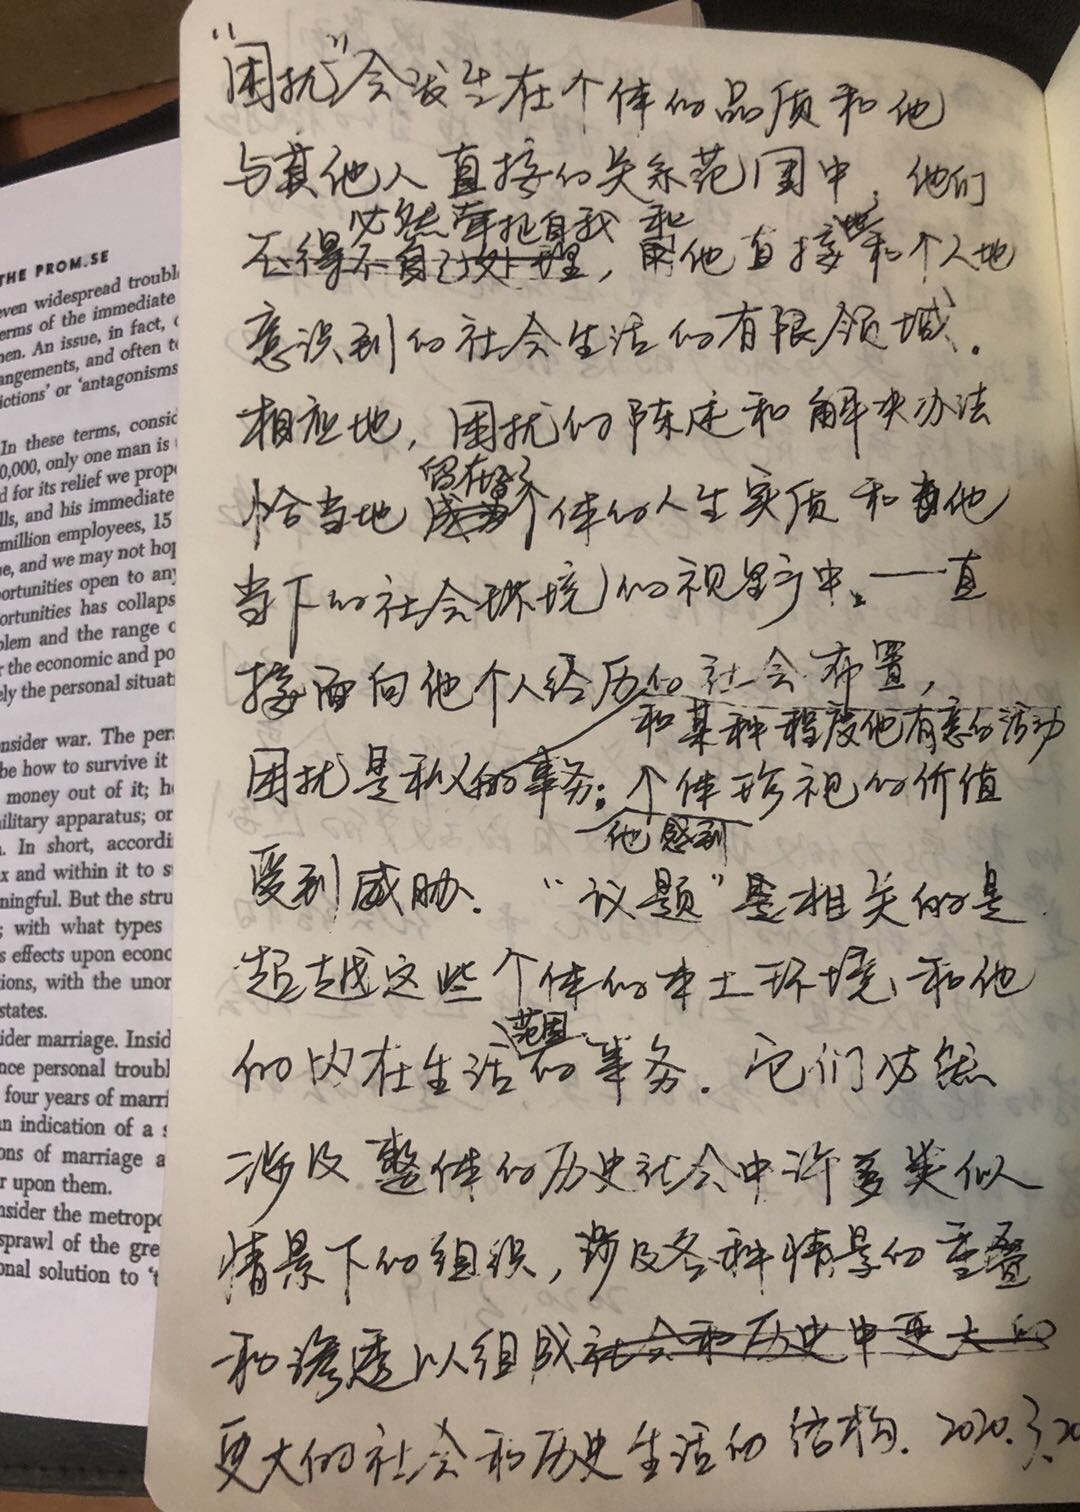 THE PROM.SE
even widespread troubl
erms of the immediate
nen. An issue, in fact, c
angements, and often to
ictions' or 'antagonisms
In these terms, consid
0,000, only one man is
d for its relief we prop
lls, and his immediate
million employees, 15
e, and we may not hop
ortunities open to any
ortunities has collaps
olem and the range o
r the economic and po
ely the personal situat
nsider war. The pers
be how to survive it
money out of it; h
ilitary apparatus; or
. In short, accordi
x and within it to s
ningful. But the stru
; with what types
s effects upon econo
ions, with the unor
states.
ider marriage. Insid
nce personal troubl
four years of marri
n indication of a s
ons of marriage a
r upon them.
nsider the metropo
sprawl of the gre
onal solution to 't
"困扰"会发生在个体的品质和他
与其他人直接的关系范围中,他们
必然牵扯自我 和
不得不自己处理,用他直接地和个人地
意识到的社会生活的有限领域.
相应地,困扰的陈述和解决办法
留在了
恰当地成为个体的人生实质和他
当下的社会环境的视野中,——直
接面向他个人经历的社会布置,
和某种程度他有意的活动
困扰是私人的事务:个体珍视的价值
他感到
受到威胁."议题"是相关的是
超越这些个体的本土环境和他
范围
的内在生活的事务.它们必然
涉及整体的历史社会中许多类似
情景下的组织,涉及各种情景的重叠
和渗透以组成社会和历史中更大的
更大的社会和历史生活的结构.2020.3.20